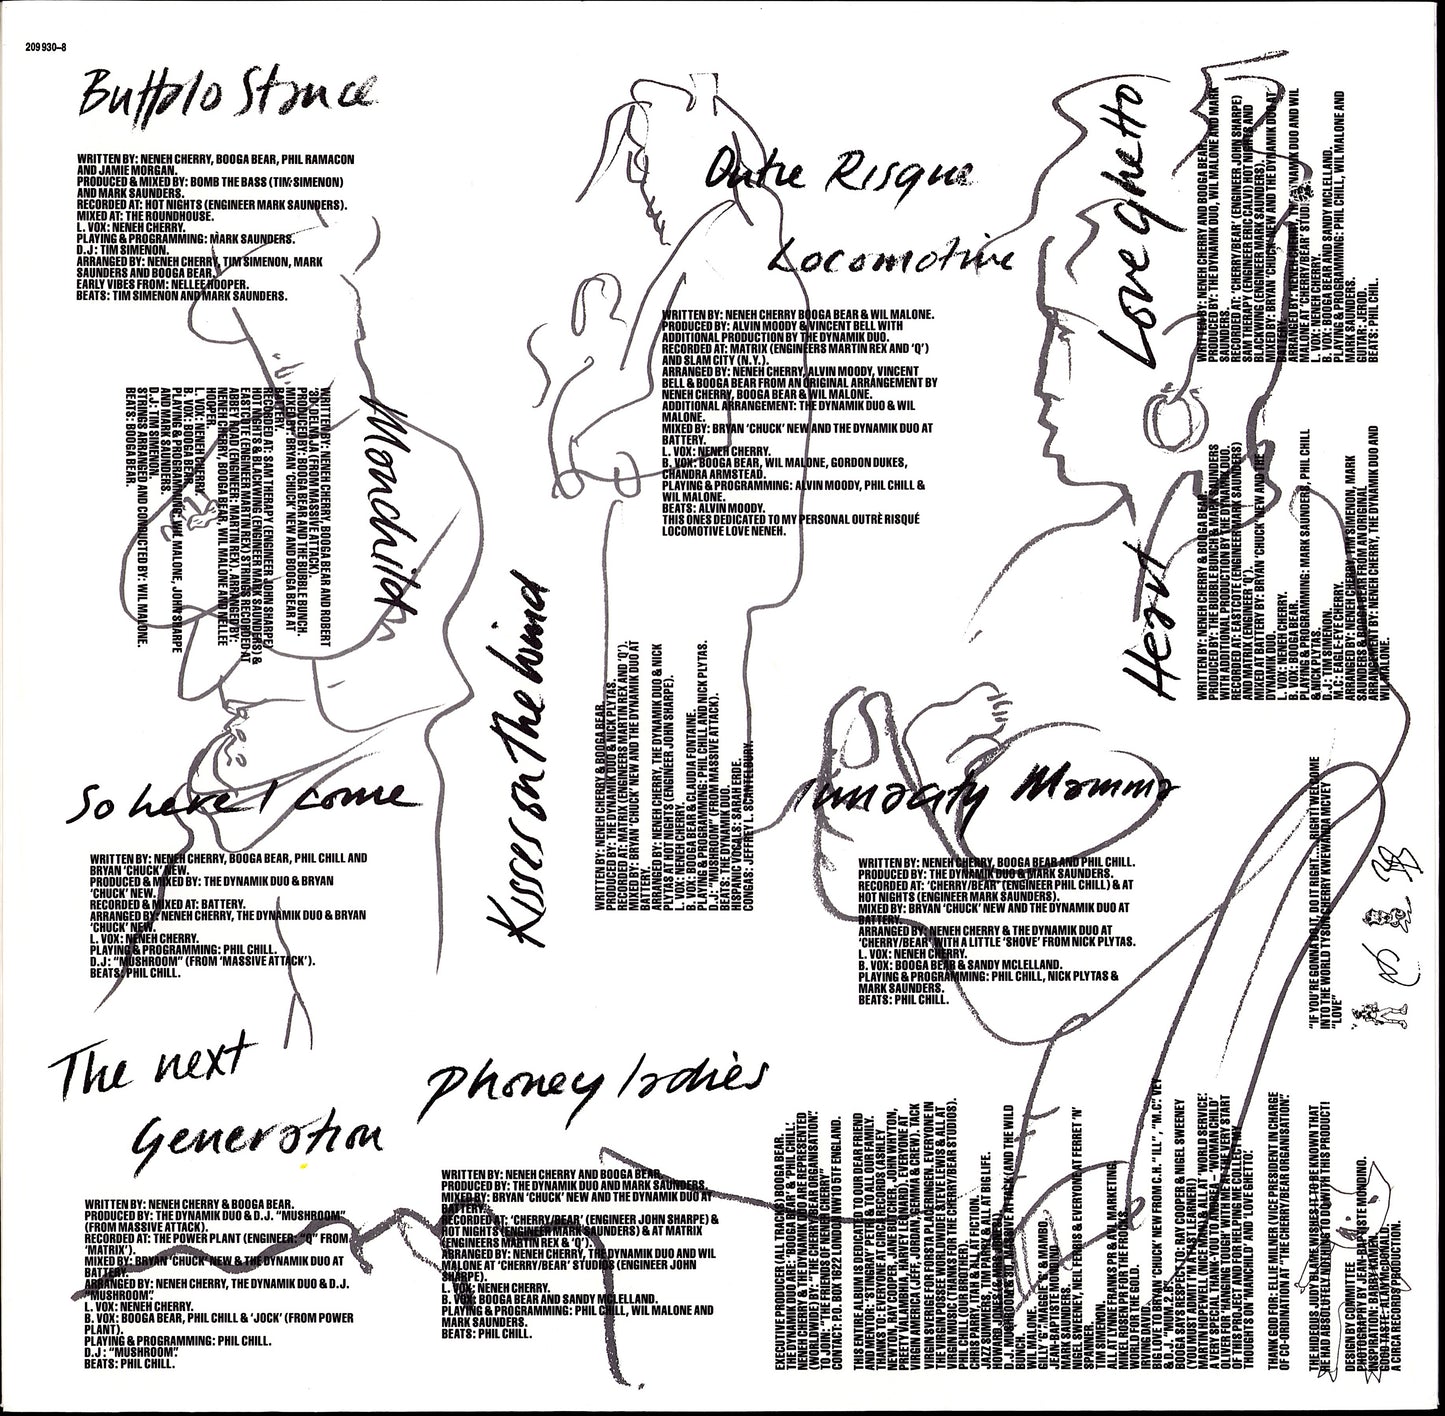 209 930–8
Buffalo Stance
WRITTEN BY: NENEH CHERRY, BOOGA BEAR, PHIL RAMACON
AND JAMIE MORGAN.
PRODUCED & MIXED BY: BOMB THE BASS (TIM SIMENON)
AND MARK SAUNDERS.
RECORDED AT: HOT NIGHTS (ENGINEER MARK SAUNDERS).
MIXED AT: THE ROUNDHOUSE.
L. VOX: NENEH CHERRY.
PLAYING & PROGRAMMING: MARK SAUNDERS.
D.J: TIM SIMENON.
ARRANGED BY: NENEH CHERRY, TIM SIMENON, MARK
SAUNDERS AND BOOGA BEAR.
EARLY VIBES FROM: NELLEE HOOPER.
BEATS: TIM SIMENON AND MARK SAUNDERS.
Manchild
WRITTEN BY: NENEH CHERRY, BOOGA BEAR AND ROBERT
'3D' DELNAJA (FROM MASSIVE ATTACK).
PRODUCED BY: BOOGA BEAR AND THE BUBBLE BUNCH.
MIXED BY: BRYAN 'CHUCK' NEW AND BOOGA BEAR AT
BATTERY.
RECORDED AT: SAM THERAPY (ENGINEER JOHN SHARPE)
HOT NIGHTS & BLACKWING (ENGINEER MARK SAUNDERS) &
EASTCOTE (ENGINEER MARTIN REX) STRINGS RECORDED AT
ABBEY ROAD (ENGINEER: MARTIN REX). ARRANGED BY:
NENEH CHERRY, BOOGA BEAR, WIL MALONE AND NELLEE
HOOPER.
L. VOX: NENEH CHERRY.
B. VOX: BOOGA BEAR.
PLAYING & PROGRAMMING: WIL MALONE, JOHN SHARPE
AND MARK SAUNDERS.
D.J: TIM SIMENON.
STRINGS ARRANGED AND CONDUCTED BY: WIL MALONE.
BEATS: BOOGA BEAR.
Kisses on The wind
WRITTEN BY: NENEH CHERRY & BOOGA BEAR.
PRODUCED BY: THE DYNAMIK DUO & NICK PLYTAS.
RECORDED AT: MATRIX (ENGINEERS MARTIN REX AND 'Q').
MIXED BY: BRYAN 'CHUCK' NEW AND THE DYNAMIK DUO AT
BATTERY.
ARRANGED BY: NENEH CHERRY, THE DYNAMIK DUO & NICK
PLYTAS AT HOT NIGHTS (ENGINEER JOHN SHARPE).
L. VOX: NENEH CHERRY.
B. VOX: BOOGA BEAR & CLAUDIA FONTAINE.
PLAYING & PROGRAMMING: PHIL CHILL AND NICK PLYTAS.
D.J: "MUSHROOM" (FROM MASSIVE ATTACK).
BEATS: THE DYNAMIK DUO.
HISPANIC VOCALS: SARAH ERDE.
CONGAS: JEFFREY L. SCANTELBURY.
Outre Risque
Locomotive
WRITTEN BY: NENEH CHERRY BOOGA BEAR & WIL MALONE.
PRODUCED BY: ALVIN MOODY & VINCENT BELL WITH
ADDITIONAL PRODUCTION BY THE DYNAMIK DUO.
RECORDED AT: MATRIX (ENGINEERS MARTIN REX AND 'Q')
AND SLAM CITY (N.Y.).
ARRANGED BY: NENEH CHERRY, ALVIN MOODY, VINCENT
BELL & BOOGA BEAR FROM AN ORIGINAL ARRANGEMENT BY
NENEH CHERRY, BOOGA BEAR & WIL MALONE.
ADDITIONAL ARRANGEMENT: THE DYNAMIK DUO & WIL
MALONE.
MIXED BY: BRYAN 'CHUCK' NEW AND THE DYNAMIK DUO AT
BATTERY.
L. VOX: NENEH CHERRY.
B. VOX: BOOGA BEAR, WIL MALONE, GORDON DUKES,
CHANDRA ARMSTEAD.
PLAYING & PROGRAMMING: ALVIN MOODY, PHIL CHILL &
WIL MALONE.
BEATS: ALVIN MOODY.
THIS ONES DEDICATED TO MY PERSONAL OUTRÈ RISQUÉ
LOCOMOTIVE LOVE NENEH.
Love ghetto
WRITTEN BY: NENEH CHERRY AND BOOGA BEAR.
PRODUCED BY: THE DYNAMIK DUO, WIL MALONE AND MARK
SAUNDERS.
RECORDED AT: 'CHERRY/BEAR' (ENGINEER JOHN SHARPE)
SAM THERAPY (ENGINEER ERIC CALVI) HOT NIGHTS AND
BLACKWING (ENGINEER MARK SAUNDERS).
MIXED BY: BRYAN 'CHUCK' NEW AND THE DYNAMIK DUO AT
ARRANGED BY: NENEH CHERRY, THE DYNAMIK DUO AND WIL
MALONE AT 'CHERRY/BEAR' STUDIOS
L. VOX: NENEH CHERRY.
B. VOX: BOOGA BEAR AND SANDY MCLELLAND.
PLAYING & PROGRAMMING: PHIL CHILL, WIL MALONE AND
MARK SAUNDERS.
GUITAR: JEROD.
BEATS: PHIL CHILL.
Heart
WRITTEN BY: NENEH CHERRY & BOOGA BEAR.
PRODUCED BY: THE BUBBLE BUNCH & MARK SAUNDERS
WITH ADDITIONAL PRODUCTION BY THE DYNAMIK DUO.
RECORDED AT: EASTCOTE (ENGINEER MARK SAUNDERS)
AND MATRIX (ENGINEER 'Q').
MIXED AT BATTERY BY: BRYAN 'CHUCK' NEW AND THE
DYNAMIK DUO.
L. VOX: NENEH CHERRY.
B. VOX: BOOGA BEAR.
PLAYING & PROGRAMMING: MARK SAUNDERS, PHIL CHILL
& NICK PLYTAS.
D.J: TIM SIMENON.
M.C: EAGLE-EYE CHERRY.
ARRANGED BY: NENEH CHERRY, TIM SIMENON, MARK
SAUNDERS & BOOGA BEAR FROM AN ORIGINAL
ARRANGEMENT BY: NENEH CHERRY, THE DYNAMIK DUO AND
WIL MALONE.
So here I come
WRITTEN BY: NENEH CHERRY, BOOGA BEAR, PHIL CHILL AND
BRYAN 'CHUCK' NEW.
PRODUCED & MIXED BY: THE DYNAMIK DUO & BRYAN
'CHUCK' NEW.
RECORDED & MIXED AT: BATTERY.
ARRANGED BY: NENEH CHERRY, THE DYNAMIK DUO & BRYAN
'CHUCK' NEW.
L. VOX: NENEH CHERRY.
PLAYING & PROGRAMMING: PHIL CHILL.
D.J: "MUSHROOM" (FROM 'MASSIVE ATTACK').
BEATS: PHIL CHILL.
Innacity Mamma
WRITTEN BY: NENEH CHERRY, BOOGA BEAR AND PHIL CHILL.
PRODUCED BY: THE DYNAMIK DUO & MARK SAUNDERS.
RECORDED AT: 'CHERRY/BEAR' (ENGINEER PHIL CHILL) & AT
HOT NIGHTS (ENGINEER MARK SAUNDERS).
MIXED BY: BRYAN 'CHUCK' NEW AND THE DYNAMIK DUO AT
BATTERY.
ARRANGED BY: NENEH CHERRY & THE DYNAMIK DUO AT
'CHERRY/BEAR' WITH A LITTLE 'SHOVE' FROM NICK PLYTAS.
L. VOX: NENEH CHERRY.
B. VOX: BOOGA BEAR & SANDY MCLELLAND.
PLAYING & PROGRAMMING: PHIL CHILL, NICK PLYTAS &
MARK SAUNDERS.
BEATS: PHIL CHILL.
"IF YOU'RE GONNA DO IT, DO IT RIGHT... RIGHT WELCOME
INTO THE WORLD TYSON CHERRY KWEWANDA MCVEY
"LOVE"
The next
Generation
WRITTEN BY: NENEH CHERRY & BOOGA BEAR.
PRODUCED BY: THE DYNAMIK DUO & D.J. "MUSHROOM"
(FROM MASSIVE ATTACK).
RECORDED AT: THE POWER PLANT (ENGINEER: "Q" FROM
'MATRIX').
MIXED BY: BRYAN 'CHUCK' NEW & THE DYNAMIK DUO AT
BATTERY.
ARRANGED BY: NENEH CHERRY, THE DYNAMIK DUO & D.J.
"MUSHROOM".
L. VOX: NENEH CHERRY.
B. VOX: BOOGA BEAR, PHIL CHILL & 'JOCK' (FROM POWER
PLANT).
PLAYING & PROGRAMMING: PHIL CHILL.
D.J: "MUSHROOM".
BEATS: PHIL CHILL.
Phoney ladies
WRITTEN BY: NENEH CHERRY AND BOOGA BEAR.
PRODUCED BY: THE DYNAMIK DUO AND MARK SAUNDERS.
MIXED BY: BRYAN 'CHUCK' NEW AND THE DYNAMIK DUO AT
BATTERY.
RECORDED AT: 'CHERRY/BEAR' (ENGINEER JOHN SHARPE) &
HOT NIGHTS (ENGINEER MARK SAUNDERS) & AT MATRIX
(ENGINEERS MARTIN REX & 'Q').
ARRANGED BY: NENEH CHERRY, THE DYNAMIK DUO AND WIL
MALONE AT 'CHERRY/BEAR' STUDIOS (ENGINEER JOHN
SHARPE).
L. VOX: NENEH CHERRY.
B. VOX: BOOGA BEAR AND SANDY MCLELLAND.
PLAYING & PROGRAMMING: PHIL CHILL, WIL MALONE AND
MARK SAUNDERS.
BEATS: PHIL CHILL.
EXECUTIVE PRODUCER (ALL TRACKS) BOOGA BEAR.
THE DYNAMIK DUO ARE: 'BOOGA BEAR' & 'PHIL CHILL'.
NENEH CHERRY AND THE DYNAMIK DUO ARE REPRESENTED
(WORLDWIDE) BY: "THE CHERRY/BEAR ORGANISATION".
TO JOIN: "THE FRIENDS OF NENEH CHERRY"
CONTACT: P.O. BOX 1622 LONDON NW10 5TF ENGLAND.
THIS ENTIRE ALBUM IS DEDICATED TO OUR DEAR FRIEND
AND MATE: 'STIKA' AND TO ALL OUR FAMILY.
THANKS TO: EVERYONE AT CIRCA RECORDS (ASHLEY
NEWTON, RAY COOPER, JANE BUTCHER, JOHN WHYTON,
PREETY VALAMBIA, HARVEY LEONARD). EVERYONE AT
VIRGIN AMERICA (JEFF, JORDAN, GEMMA & CREW). TACK
VIRGIN SVERIGE FOR FORSTA PLACERINGEN. EVERYONE IN
THE VIRGIN CRUSEE WORLDWIDE! STEVE LEWIS & ALL AT
VIRGIN MUSIC (CHEERS FOR THE CHERRY/BEAR STUDIOS).
PHIL CHILL (OUR BROTHER).
CHRIS PARRY, ITANA & ALL AT FICTION.
JAZZ SUMMERS, TIM PARRY & ALL AT BIG LIFE.
D.J. MUSHROOM & 3D, MASSIVE ATTACK (AND THE WILD
BUNCH.
WIL MALONE.
GILLY 'G', MAGGIE 'C' & MAMBO.
JEAN-BAPTISTE MONDINO.
MARK SAUNDERS.
NIGEL SWEENEY, NEIL FERRIS & EVERYONE AT FERRET 'N'
SPANNER.
TIM SIMENON.
ALL AT LYNNE FRANKS PR & ALL MARKETING
WORLD FOR THE GOLD.
IRVING DAVID.
BIG LOVE TO BRYAN 'CHUCK' NEW FROM C.H. "ILL", "M.C." VEY
& D.J. "MUM.2.B".
BOOGA SAYS RESPECT TO: RAY COOPER & NIGEL SWEENEY
(YOU MUST ADJUST ULTIMATE FASTLANERS)
A VERY SPECIAL THANK-YOU TO ANDREA – 'WOMAN CHILD'
OLIVER FOR 'HANGING TOUGH' WITH ME AT THE VERY START
OF THIS PROJECT AND FOR HELPING ME COLLECT MY
THOUGHTS ON 'MANCHILD' AND 'LOVE GHETTO'.
THANK GOD FOR: ELLIE MILNER (VICE PRESIDENT IN CHARGE
OF CO-ORDINATION) AT "THE CHERRY/BEAR ORGANISATION".
THE HIDEOUS JUDY BLAME WISHES IT TO BE KNOWN THAT
HE HAD ABSOLUTELY NOTHING TO DO WITH THIS PRODUCT!
DESIGN BY COMMITTEE
PHOTOGRAPH BY JEAN-BAPTISTE MONDINO.
A CIRCA RECORDS PRODUCTION.